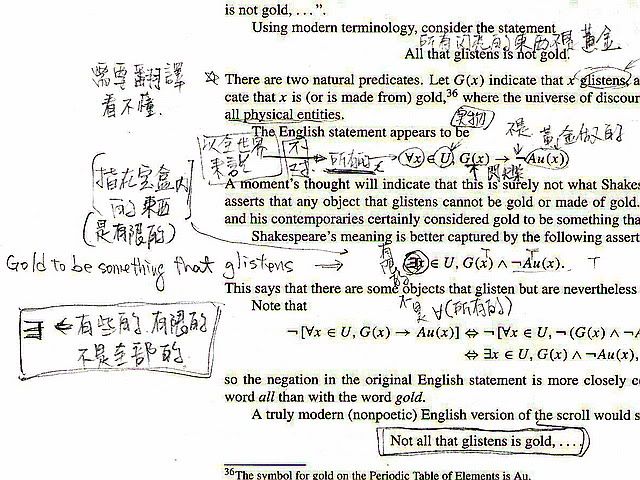 is not gold, . . .".
Using modern terminology, consider the statement
所有閃亮的東西不是 黃金
All that glistens is not gold.
需要翻譯
看不懂.
There are two natural predicates. Let G(x) indicate that x glistens, a
cate that x is (or is made from) gold,³⁶ where the universe of discour
all physical entities.
The English statement appears to be
不是 黃金做的
以全世界
來說
不
對
所有的 x
∀x ∈ U, G(x) → ¬Au(x).
[指在寶盒內
的東西]
(是有限的)
A moment's thought will indicate that this is surely not what Shakes
asserts that any object that glistens cannot be gold or made of gold.
and his contemporaries certainly considered gold to be something tha
Shakespeare's meaning is better captured by the following assert
Gold to be something that glistens ⇒
有限的
∃x ∈ U, G(x) ∧ ¬Au(x).
T T T
This says that there are some objects that glisten but are nevertheless
不是 ∀(所有的)
Note that
∃ ← 有些的, 有限的
不是全部的.
¬ [∀x ∈ U, G(x) → Au(x)] ⇔ ¬ [∀x ∈ U, ¬ (G(x) ∧ ¬A
⇔ ∃x ∈ U, G(x) ∧ ¬Au(x),
so the negation in the original English statement is more closely c
word all than with the word gold.
A truly modern (nonpoetic) English version of the scroll would s
Not all that glistens is gold, . . . .
³⁶The symbol for gold on the Periodic Table of Elements is Au.